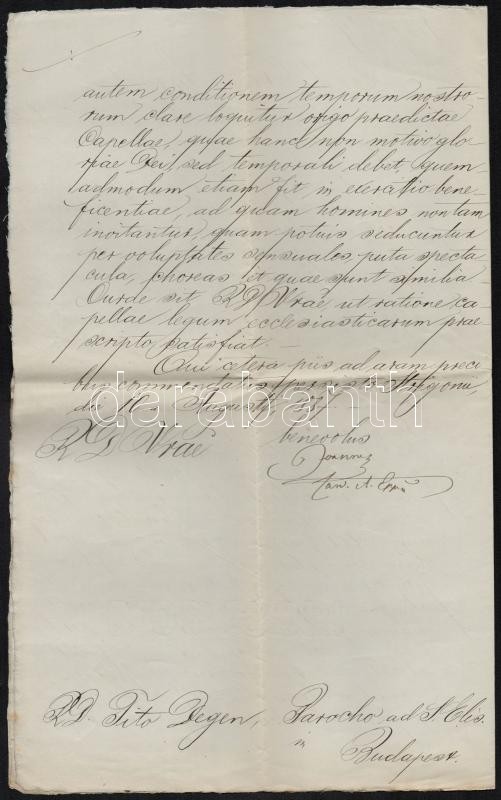 autem conditionem temporum nostro-
rum clare loquitur origo praedictae
Capellae, quae hanc non motivo glo-
riae Dei, sed temporali debet, quem-
admodum etiam fit, in exercitio bene-
ficentiae, ad quam homines non tam
invitantur, quam potius seducuntur
per voluptates sensuales, puta specta-
cula, choreas et quae sunt similia.
Curae sit R D Vrae, ut ratione ca-
pellae legum ecclesiasticarum prae-
scripto satisfiat. –
Qui cetera piis ad aram preci-
bus commendatus persisto Strigonii,
die 16 Augusti
R D Vrae
benevolus
Joannes
darabanth
RD. Tito Degen, Parocho ad S. Elis.
in
Budapest.